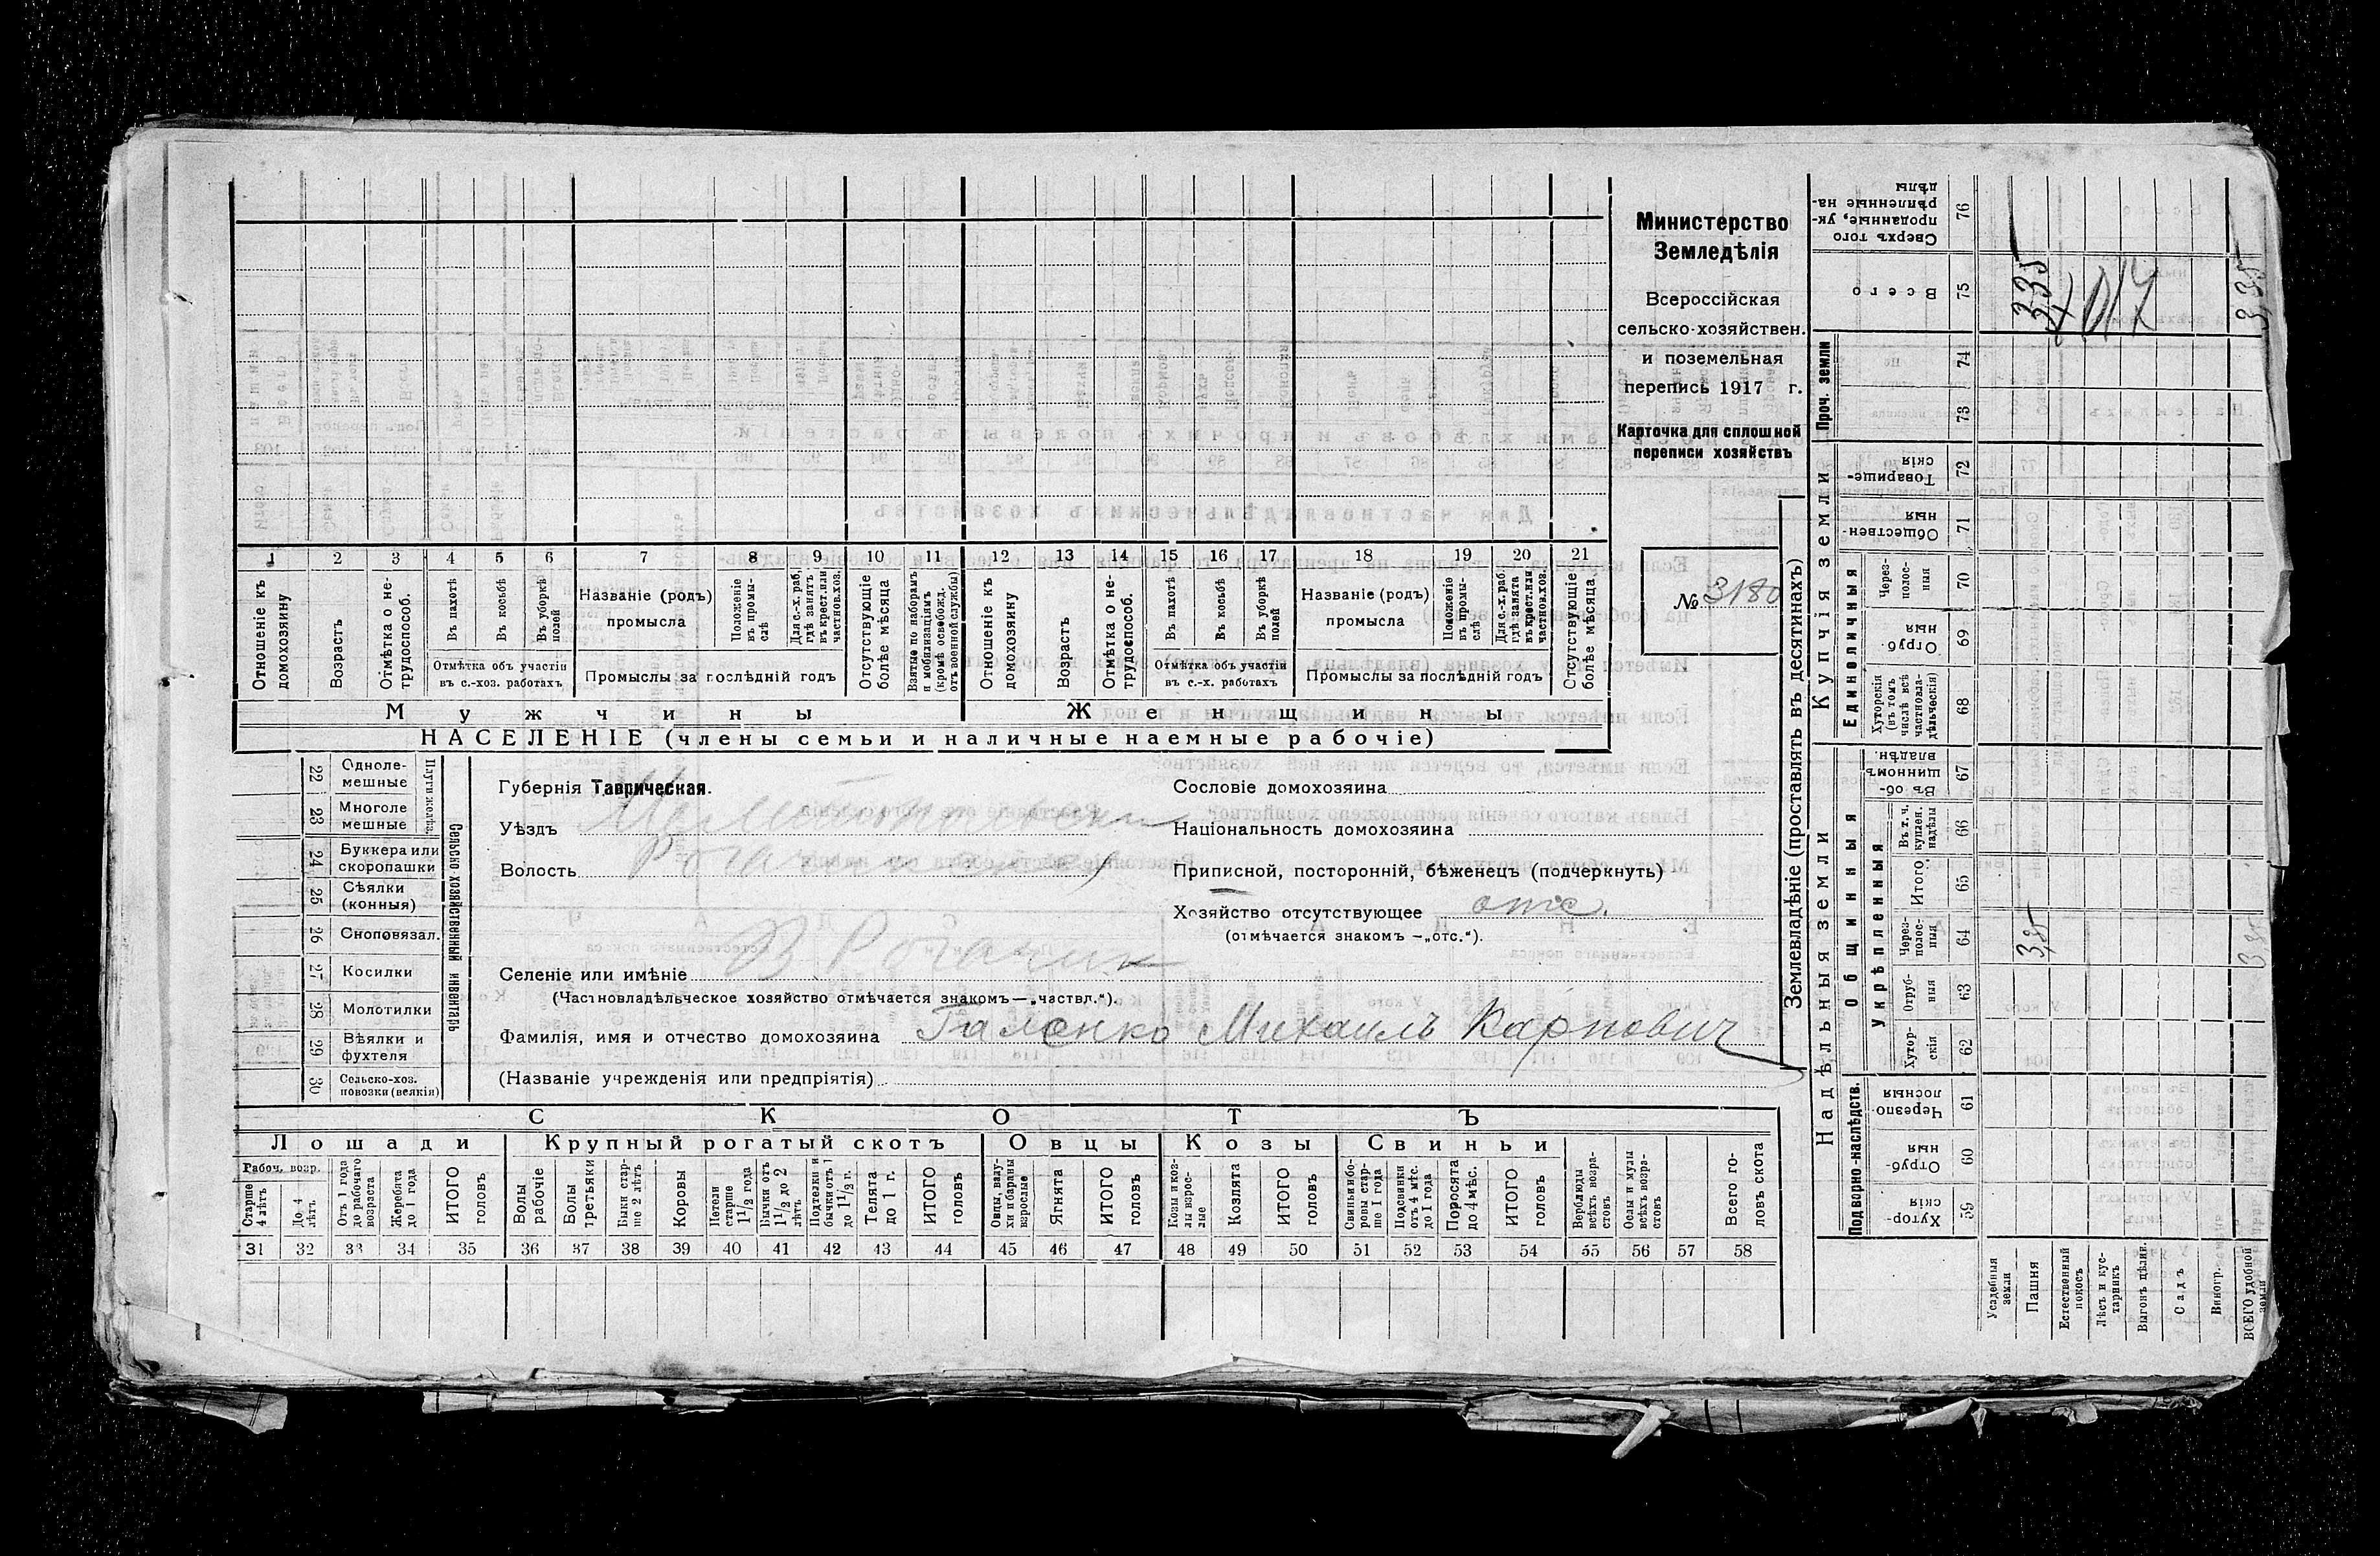 1 2 3 4 5 6 7 8 9 10 11 12 13 14 15 16 17 18 19 20 21
Отношеніе къ домохозяину
Возрастъ
Отмѣтка о не-трудоспособ.
Въ пахотѣ
Въ косьбѣ
Въ уборкѣ полей
Отмѣтка объ участіи
въ с.-хоз. работахъ
Названіе (родъ)
промысла
Положеніе въ промы-слѣ
Для с.-х. раб. гдѣ занятъ въ крест. или частнов. хоз.
Промыслы за послѣдній годъ
Отсутствующіе болѣе мѣсяца
Взятые по наборамъ и мобилизаціямъ (кромѣ освобожд. отъ военной службы)
Отношеніе къ домохозяину
Возрастъ
Отмѣтка о не-трудоспособ.
Въ пахотѣ
Въ косьбѣ
Въ уборкѣ полей
Отмѣтка объ участіи
въ с.-х. работахъ
Названіе (родъ)
промысла
Положеніе въ промы-слѣ
Для с.-х. раб. гдѣ занята въ крест. или частнов. хоз.
Промыслы за послѣдній годъ
Отсутствующіе болѣе мѣсяца
Мужчины
Женщины
НАСЕЛЕНІЕ (члены семьи и наличные наемные рабочіе)
Министерство
Земледѣлія
Всероссійская
сельско-хозяйствен.
и поземельная
перепись 1917 г.
Карточка для сплошной
переписи хозяйствъ
№ 3180
22 Одноле-мешные
23 Многоле мешные
Плуги желѣз.
24 Буккера или скоропашки
25 Сѣялки (конныя)
26 Сноповязал.
27 Косилки
28 Молотилки
29 Вѣялки и фухтеля
30 Сельско-хоз. повозки (всякія)
Сельско-хозяйственный инвентарь
Губернія Таврическая.
Уѣздъ
Волость
Селеніе или имѣніе В Рогачик
(Частновладѣльческое хозяйство отмѣчается знакомъ—„частвл.“).
Фамилія, имя и отчество домохозяина Галенко Михаилъ Карпович
(Названіе учрежденія или предпріятія)
Сословіе домохозяина
Національность домохозяина
Приписной, посторонній, бѣженецъ (подчеркнуть)
Хозяйство отсутствующее отс.
(отмѣчается знакомъ —„отс.“).
СКОТЪ
Лошади
Крупный рогатый скотъ
Овцы
Козы
Свиньи
Рабоч. возр.
Старше 4 лѣтъ
До 4 лѣтъ
Отъ 1 года до рабочаго возраста
Жеребята до 1 года
ИТОГО головъ
Волы рабочіе
Волы третьяки
Быки стар-ше 2 лѣтъ
Коровы
Нетели старше 1 1/2 года
Бычки отъ 1 1/2 до 2 лѣтъ
Подтелки и бычки отъ 1 до 1 1/2 г.
Телята до 1 г.
ИТОГО головъ
Овцы, валу-хи и бараны взрослые
Ягнята
ИТОГО головъ
Козы и коз-лы взрос-лые
Козлята
ИТОГО головъ
Свиньи и бо-ровы стар-ше 1 года
Подсвинки отъ 4 мѣс. до 1 года
Поросята до 4 мѣс.
ИТОГО головъ
Верблюды всѣхъ возра-стовъ
Ослы и мулы всѣхъ возра-стовъ
Всего го-ловъ скота
31 32 33 34 35 36 37 38 39 40 41 42 43 44 45 46 47 48 49 50 51 52 53 54 55 56 57 58
Землевладѣніе (проставлять въ десятинахъ)
Надѣльныя земли
Купчія земли
Проч. земли
Подворно-наслѣдств.
Общинныя
Укрѣпленныя
Единоличныя
Хутор-скія 59
Отруб-ныя 60
Черезпо-лосныя 61
Хутор-скія 62
Отруб-ныя 63
Через-полос-ныя 64
Итого 65
Въ т. ч. куплен. надѣлы 66
Въ об-щинномъ владѣн. 67
Хуторскія (въ томъ числѣ всѣ частновла-дѣльческія) 68
Отруб-ныя 69
Через-полос-ныя 70
Обществен-ныя 71
Товарище-скія 72
73
74
Всего 75
Сверхъ того проданные, ук-рѣпленные на-дѣлы 76
Усадебныя земли
Пашня
Естественный покосъ
Лѣсъ и кус-тарникъ
Выгонъ цѣлин.
Садъ
Виногр.
ВСЕГО удобной земли